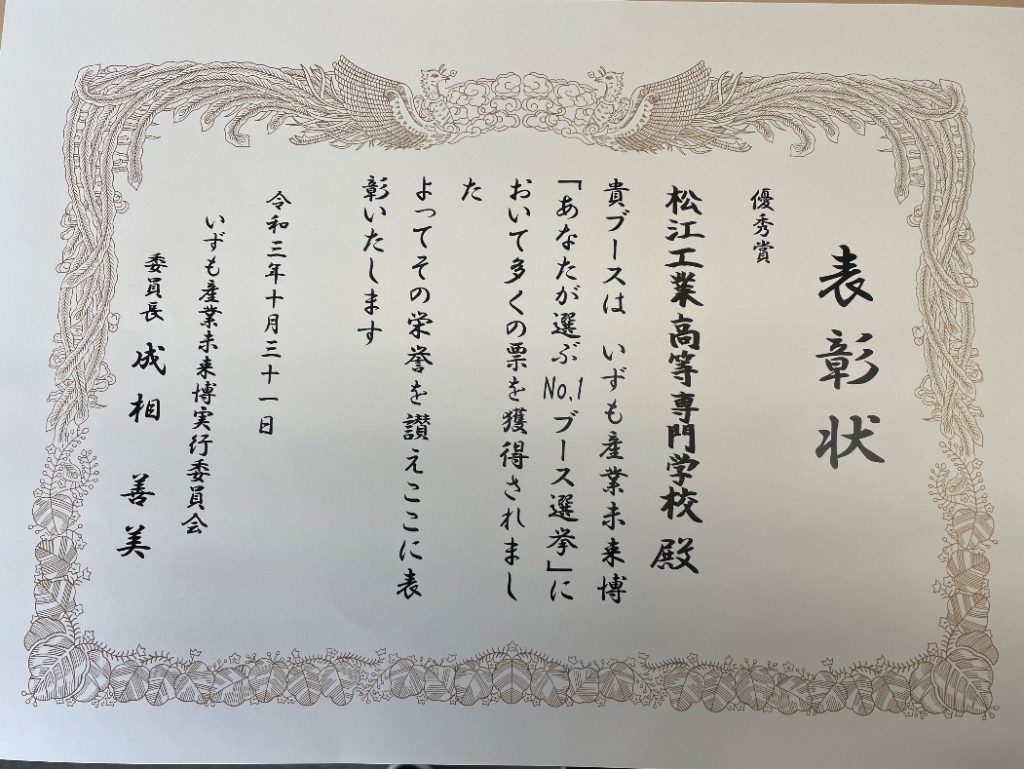 表彰状
優秀賞
松江工業高等専門学校 殿
貴ブースは いずも産業未来博
「あなたが選ぶNo.1ブース選挙」に
おいて多くの票を獲得されまし
た
よってその栄誉を讃えここに表
彰いたします
令和三年十月三十一日
いずも産業未来博実行委員会
委員長 成相 善美